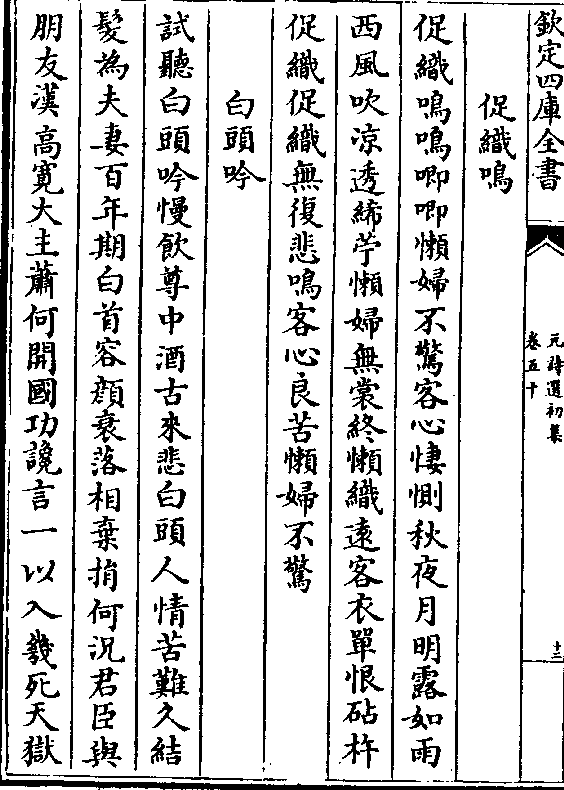 欽定四庫全書
元詩選初集
卷五十
十二
促織鳴
促織鳴鳴唧唧懶婦不驚客心悽惻秋夜月明露如雨
西風吹涼透絺苧懶婦無裳終懶織遠客衣單恨砧杵
促織促織無復悲鳴客心良苦懶婦不驚
白頭吟
試聽白頭吟慢飲尊中酒古來悲白頭人情苦難久結
髮為夫妻百年期白首容顔衰落相棄捎何況君臣與
朋友漢高寛大主蕭何開國功讒言一以入幾死天獄